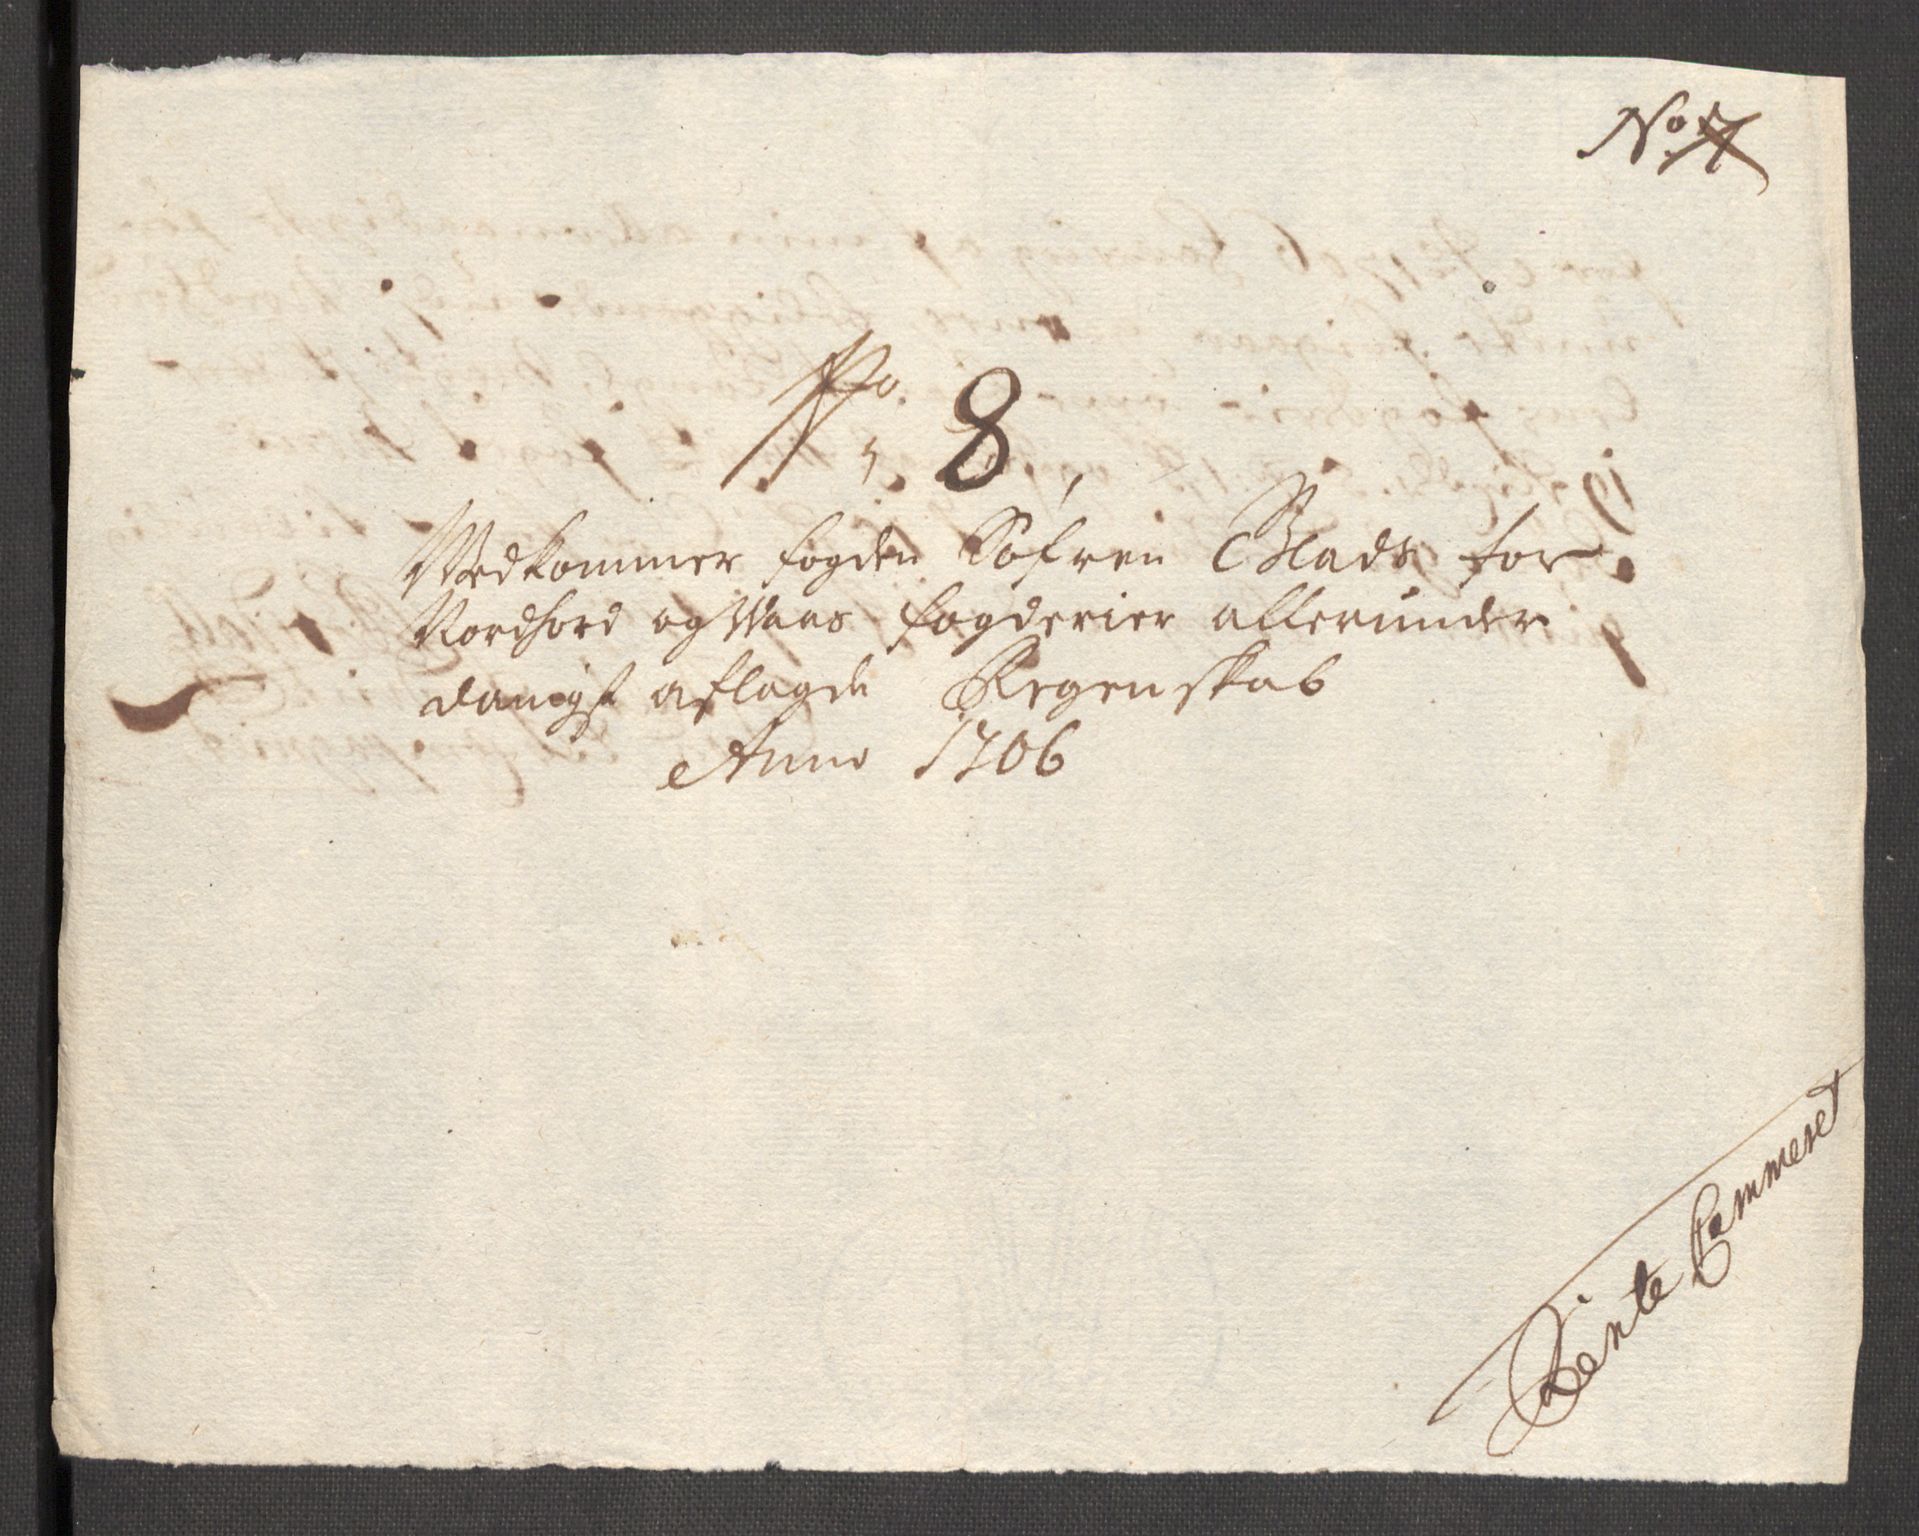 No 7
No. 8,
Vedkommer fogden Søfren Blads for
Nordhord og Waas fogderier allerunder
danigst aflagde Regenskab
Anno 1706
Rente Cammeret